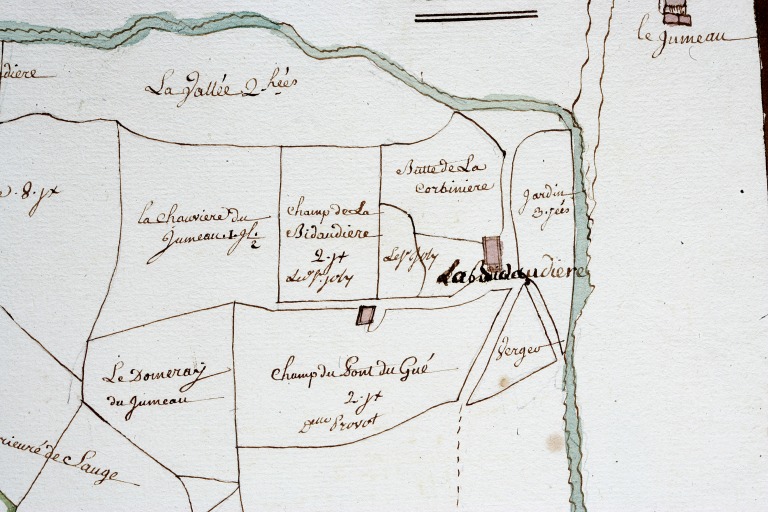 le Jumeau
dière
La Vallée 2 hées
Butte de La
Corbiniere
Jardin
la chauviere du
Jumeau. 1. jt. 1/2
Champ de La
Bidaudiere
2. jt
Le Sr. Joly
Le Sr. Joly
La bidaudiere
8. jt
Verger
Le Domeray
du Jumeau
Champ du Pont du Gué
2. jt
Provot
rieuré de Sauge